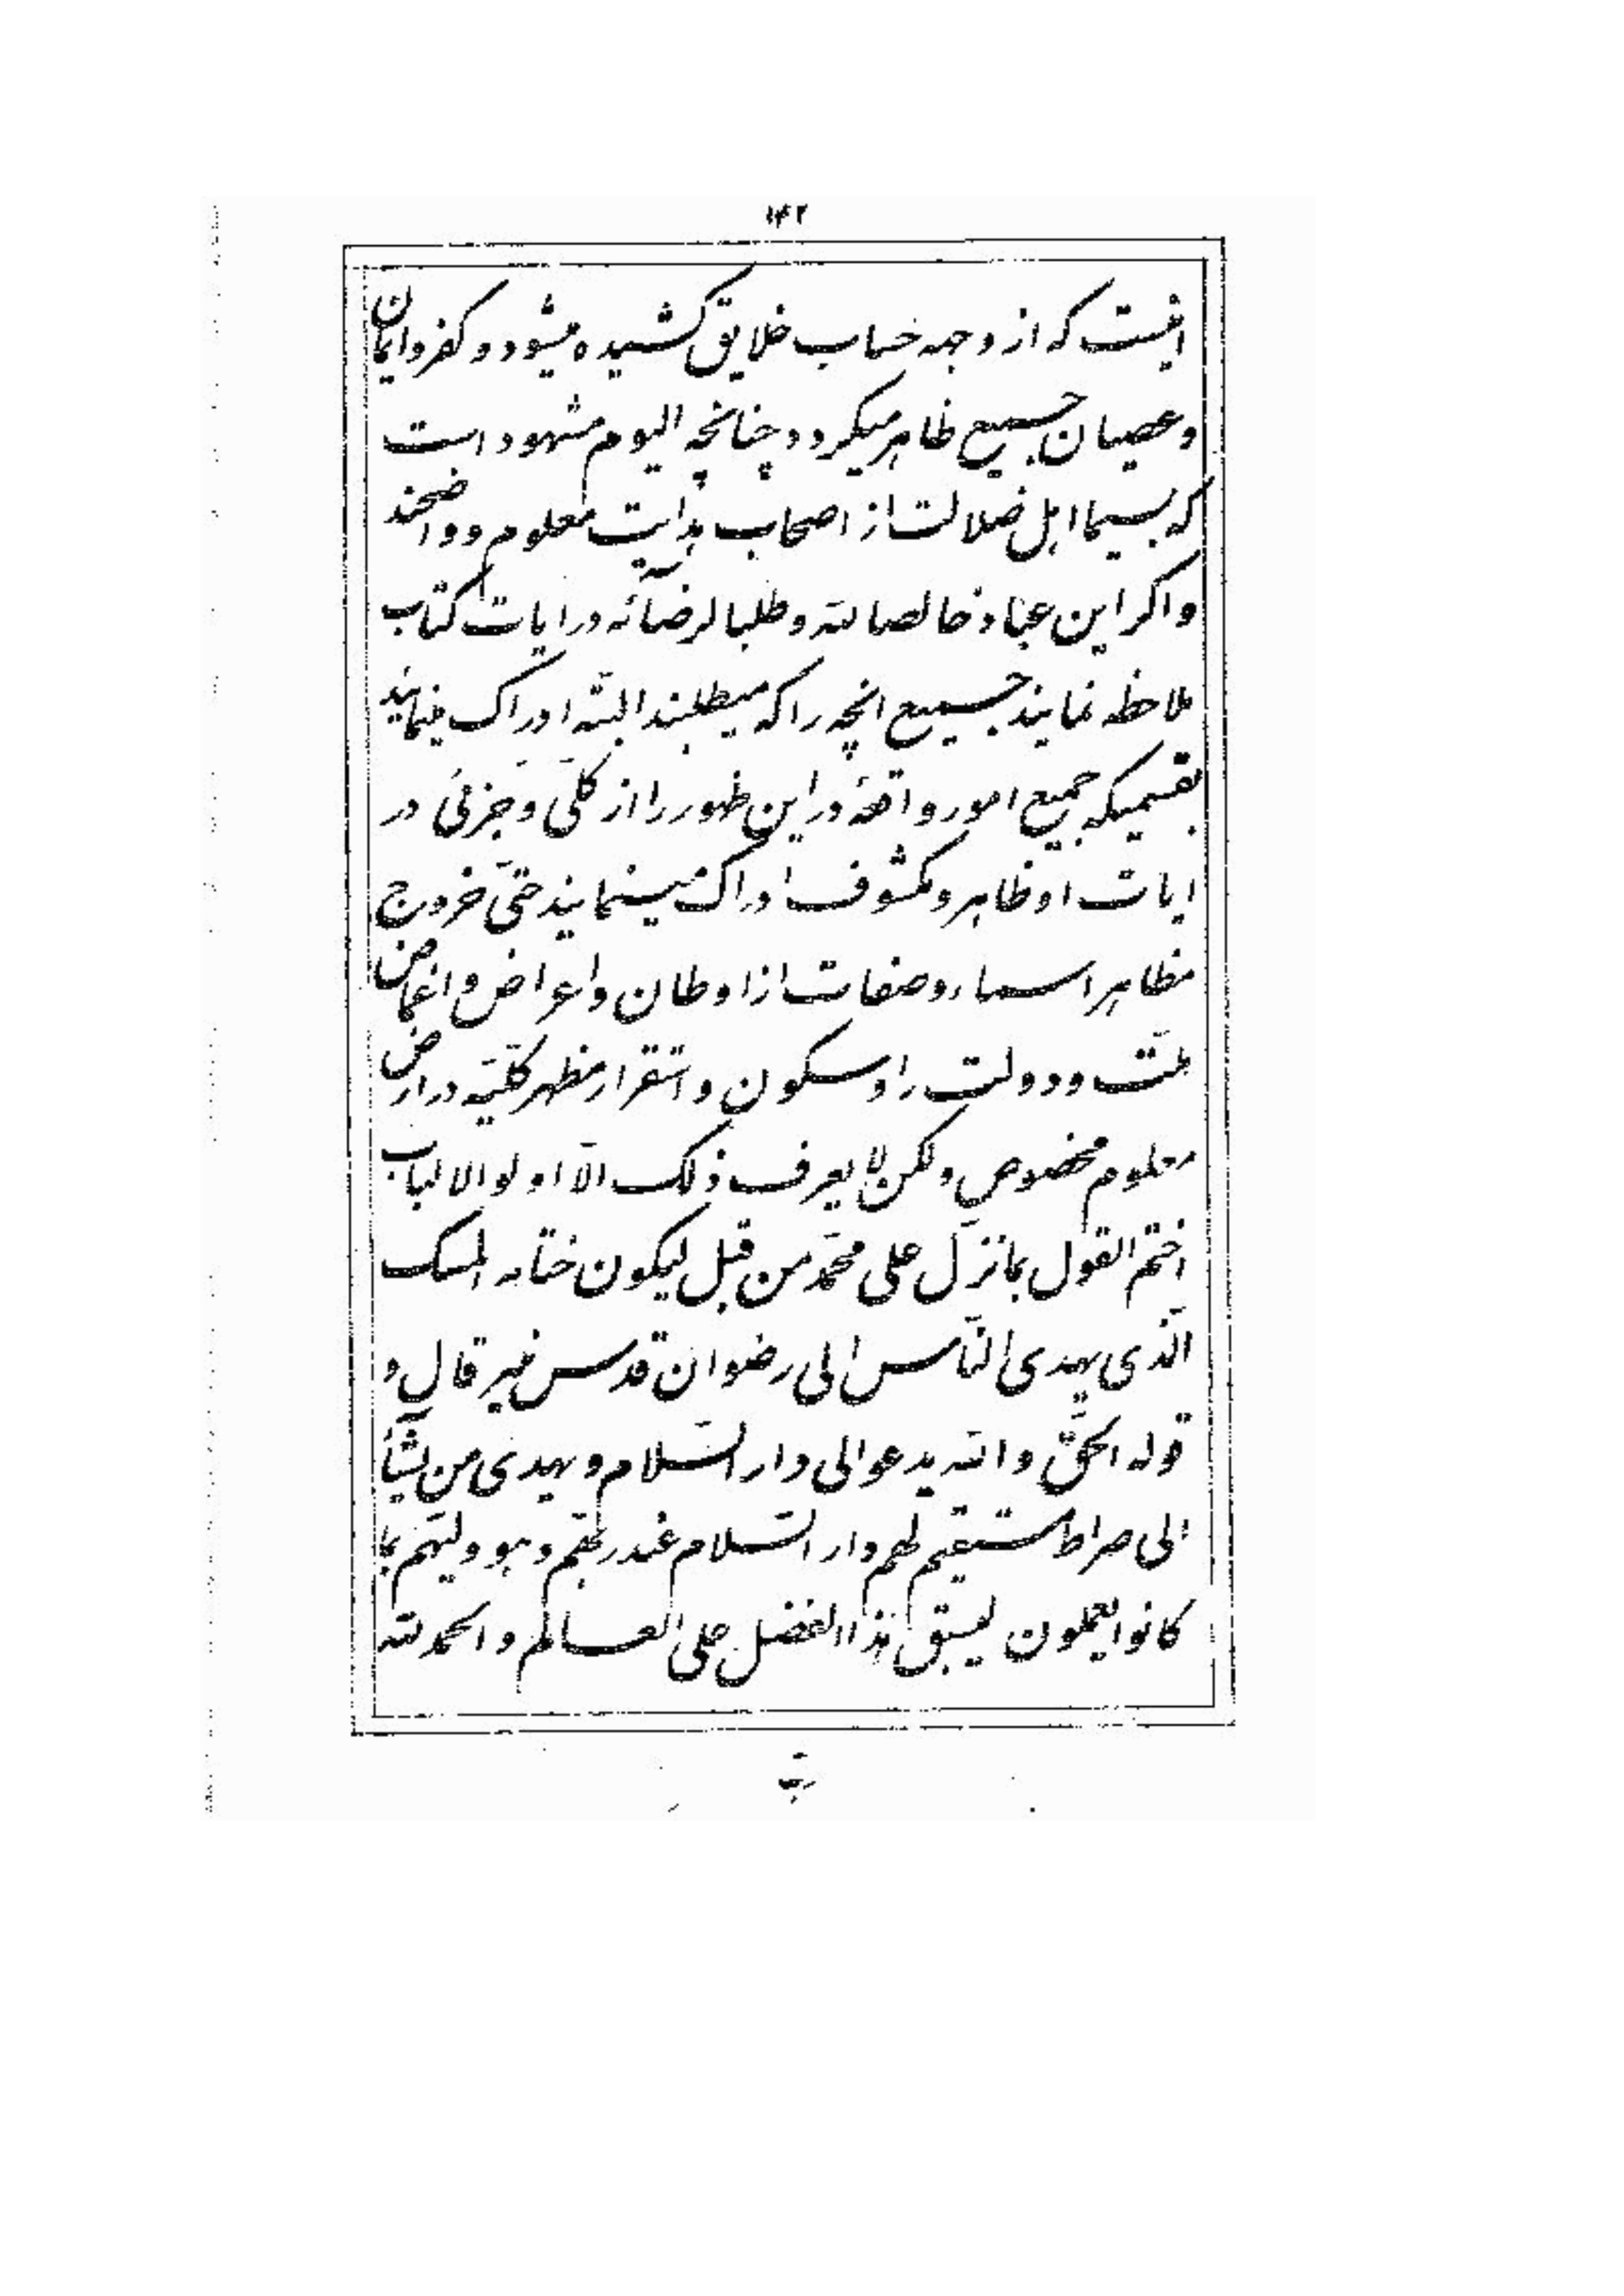 ۱۴۲
اینست که از وجه حساب خلایق کشیده میشود و کفر و ایمان
و عصیان جمیع ظاهر میگردد چنانچه الیوم مشهود است
که بسیما اهل ضلالت از اصحاب هدایت معلوم و واضحند
و اگر این عباد خالصا لله و طلبا لرضائه در ایات کتاب
ملاحظه نمایند جمیع انچه را که میطلبند البتّه ادراک مینمایند
بقسمیکه جمیع امور واقعهٔ در این ظهور را از کلّی و جزئی در
ایات او ظاهر و مکشوف ادراک مینمایند حتّی خروج
مظاهر اسماء و صفات از اوطان و اعراض و اغماض
ملّت و دولت را و سکون و استقرار مظهر کلّیّه در ارض
معلوم مخصوص ولکن لا یعرف ذلک الّا اولو الالباب
اختم القول بما نزّل علی محمّد من قبل لیکون ختامه المسک
الّذی یهدی النّاس الی رضوان قدس منیر قال و
قوله الحقّ و الله یدعو الی دار السّلام و یهدی من یشآء
الی صراط مستقیم لهم دار السّلام عند ربّهم و هو ولیّهم بما
کانوا یعملون لیسبق هذا الفضل علی العالم و الحمد لله
ربّ